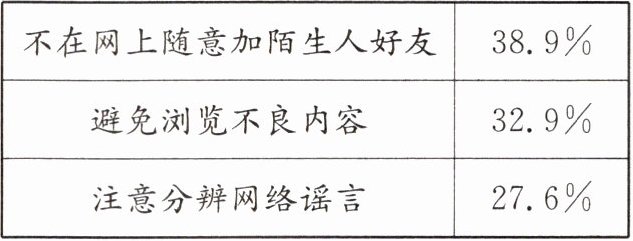 不在网上随意加陌生人好友 38.9%
避免浏览不良内容 32.9%
注意分辨网络谣言 27.6%